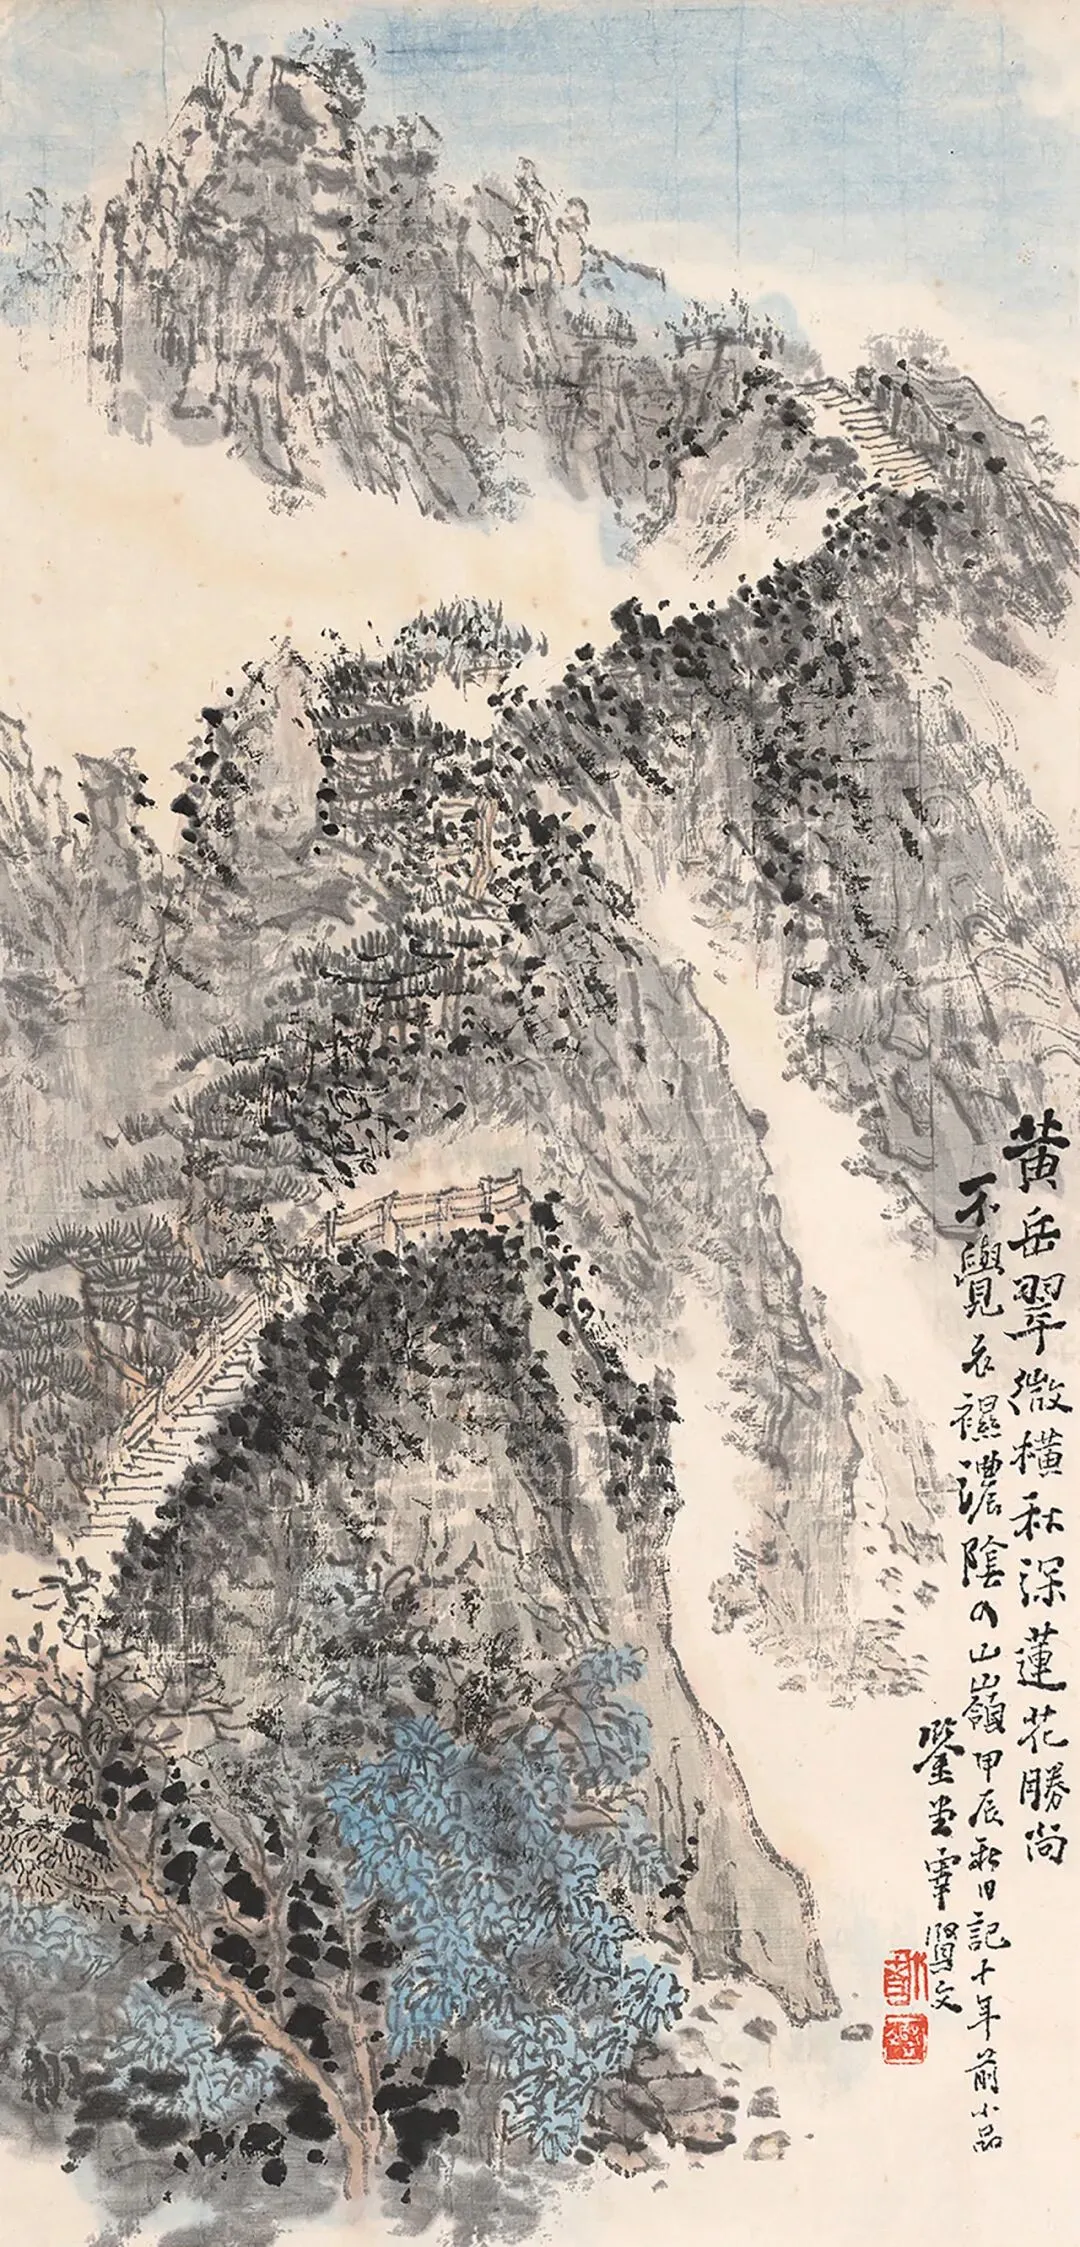 黄岳翠微横秋深蓮花勝尚
不覺衣濕濃陰の山嶺甲辰秋日記十年前小品
鑒堂覃賢文